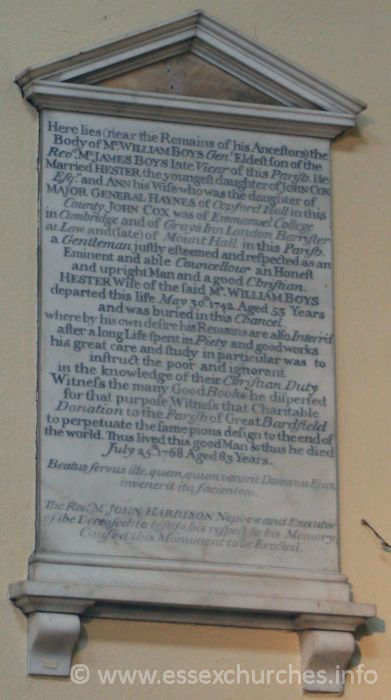 Here lies (near the Remains of his Anceſtors) the
Body of Mr. WILLIAM BOYS Gent. Eldeſt ſon of the
Revd. Mr. JAMES BOYS late Vicar of this Pariſh. He
Married HESTER the youngeſt daughter of JOHN COX
Eſqr. and ANN his Wife who was the daughter of
MAJOR GENERAL HAYNES of Copford Hall in this
County. JOHN COX was of Emmanuel College
in Cambridge and of Grays Inn London Barriſter
at Law and (late) of Mount Hall in this Pariſh.
a Gentleman juſtly eſteemed and reſpected as an
Eminent and able Councellour an Honeſt
and upright Man and a good Chriſtian.
HESTER Wife of the ſaid Mr. WILLIAM BOYS
departed this life May 30th 1742 Aged 53 Years
and was buried in this Chancel.
where by his own deſire his Remains are alſo Interr'd
after a long Life ſpent in Piety and good works
his great care and ſtudy in particular was to
inſtruct the poor and ignorant
in the knowledge of their Chriſtian Duty
Witneſs the many Good Books he diſperſed
for that purpoſe, Witneſs that Charitable
Donation to the Pariſh of Great Bardfield
to perpetuate the ſame pious deſign to the end of
the world. Thus lived this good Man & thus he died
July 25th 1768 Aged 85 Years.
Beatus ſervus ille, quem, quum venerit Dominus Ejus,
invenerit ita facientem.
The Revd. Mr. JOHN HARRISON Nephew and Executor
of the Deceaſed: to teſtify his reſpect to his Memory
Cauſed this Monument to be Erected.
© www.essexchurches.info